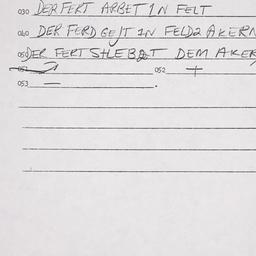 030 DER FERT ARBET IN FELT
040 DER FERD GEJT IN FELD2 AKERN
050 DER FERT SHLEBBT DEM AKER
051 052 +
053 — .